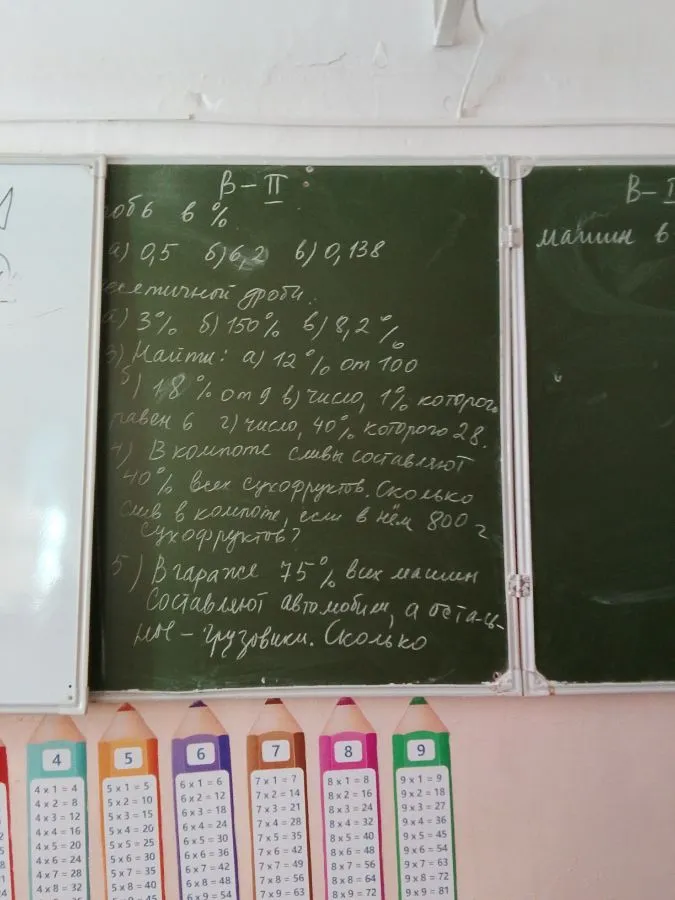 В-II
обь в %
а) 0,5 б) 6,2 в) 0,138
есятичной дроби.
а) 3% б) 150% в) 8,2%
3) Найти: а) 12% от 100
б) 18% от 9 в) число, 1% которого
равен 6 г) число, 40% которого 28.
4) В компоте сливы составляют
40% всех сухофруктов. Сколько
слив в компоте, если в нём 800 г
сухофруктов?
5) В гараже 75% всех машин
составляют автомобили, а осталь-
ные - грузовики. Сколько
В-I
машин в
4
4 x 1 = 4
4 x 2 = 8
4 x 3 = 12
4 x 4 = 16
4 x 5 = 20
4 x 6 = 24
4 x 7 = 28
4 x 8 = 32
5
5 x 1 = 5
5 x 2 = 10
5 x 3 = 15
5 x 4 = 20
5 x 5 = 25
5 x 6 = 30
5 x 7 = 35
5 x 8 = 40
6
6 x 1 = 6
6 x 2 = 12
6 x 3 = 18
6 x 4 = 24
6 x 5 = 30
6 x 6 = 36
6 x 7 = 42
6 x 8 = 48
6 x 9 = 54
7
7 x 1 = 7
7 x 2 = 14
7 x 3 = 21
7 x 4 = 28
7 x 5 = 35
7 x 6 = 42
7 x 7 = 49
7 x 8 = 56
7 x 9 = 63
8
8 x 1 = 8
8 x 2 = 16
8 x 3 = 24
8 x 4 = 32
8 x 5 = 40
8 x 6 = 48
8 x 7 = 56
8 x 8 = 64
8 x 9 = 72
9
9 x 1 = 9
9 x 2 = 18
9 x 3 = 27
9 x 4 = 36
9 x 5 = 45
9 x 6 = 54
9 x 7 = 63
9 x 8 = 72
9 x 9 = 81